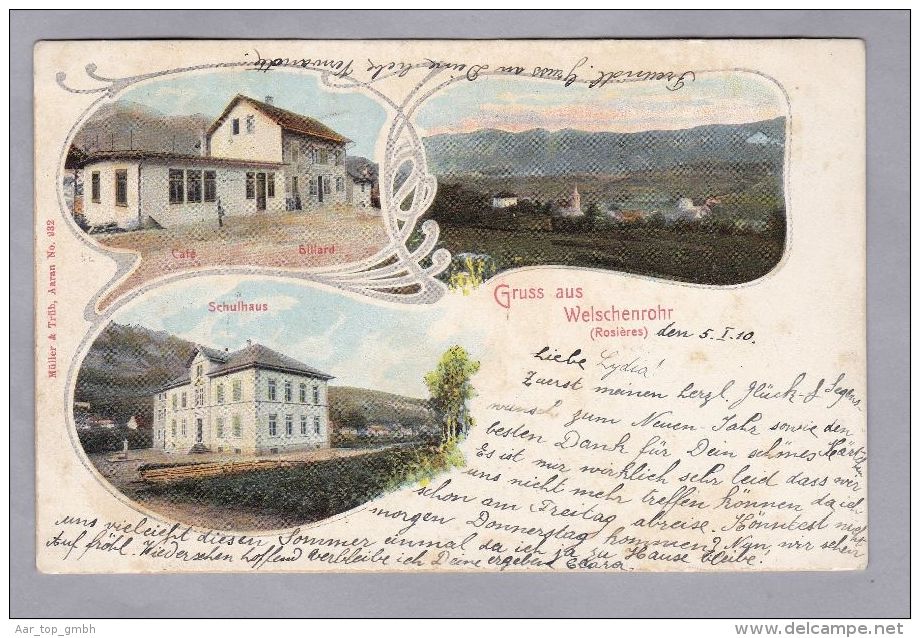 Freundl. Gruss an Deine lieb. Verwandte
Café Billard
Schulhaus
Müller & Trüb, Aarau No. 932
Gruss aus
Welschenrohr
(Rosières) den 5. I. 10.
Liebe Lydia!
Zuerst meinen herzl. Glück- & Segens-
wunsch zum Neuen-Jahr sowie den
besten Dank für Dein schönes Kärtchen
Es ist mir wirklich sehr leid dass wir
uns nicht mehr treffen können, da ich
schon am Freitag abreise. Könntest nicht
morgen Donnerstag kommen? Nun, wir sehen
uns vieleicht diesen Sommer einmal da ich ja zu Hause bleibe.
Auf fröhl. Wiedersehen hoffend verbleibe ich Deine ergebene Clara.
Aar_top_gmbh
www.delcampe.net